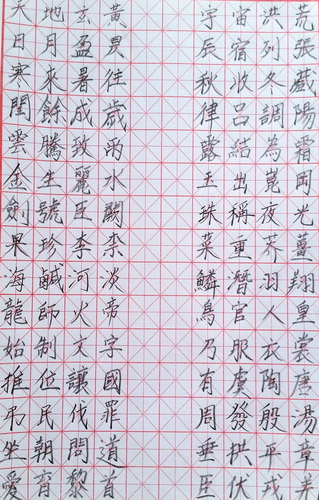 天地玄黃 宇宙洪荒
日月盈昃 辰宿列張
寒來暑往 秋收冬藏
閏餘成歲 律呂調陽
雲騰致雨 露結為霜
金生麗水 玉出崑岡
劍號巨闕 珠稱夜光
果珍李柰 菜重芥薑
海鹹河淡 鱗潛羽翔
龍師火帝 鳥官人皇
始制文字 乃服衣裳
推位讓國 有虞陶唐
吊民伐罪 周發殷湯
坐朝問道 垂拱平章
愛育黎首 臣伏戎羌